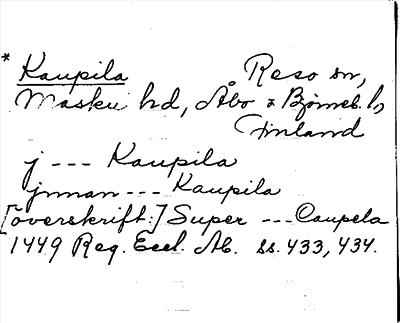 * Kaupila Reso sn,
Masku hd, Åbo & Björneb. l,
Finland
j --- Kaupila
jnman --- Kaupila
[överskrift:] Super --- Caupela
1449 Reg. Eccl. Ab. ss. 433, 434.